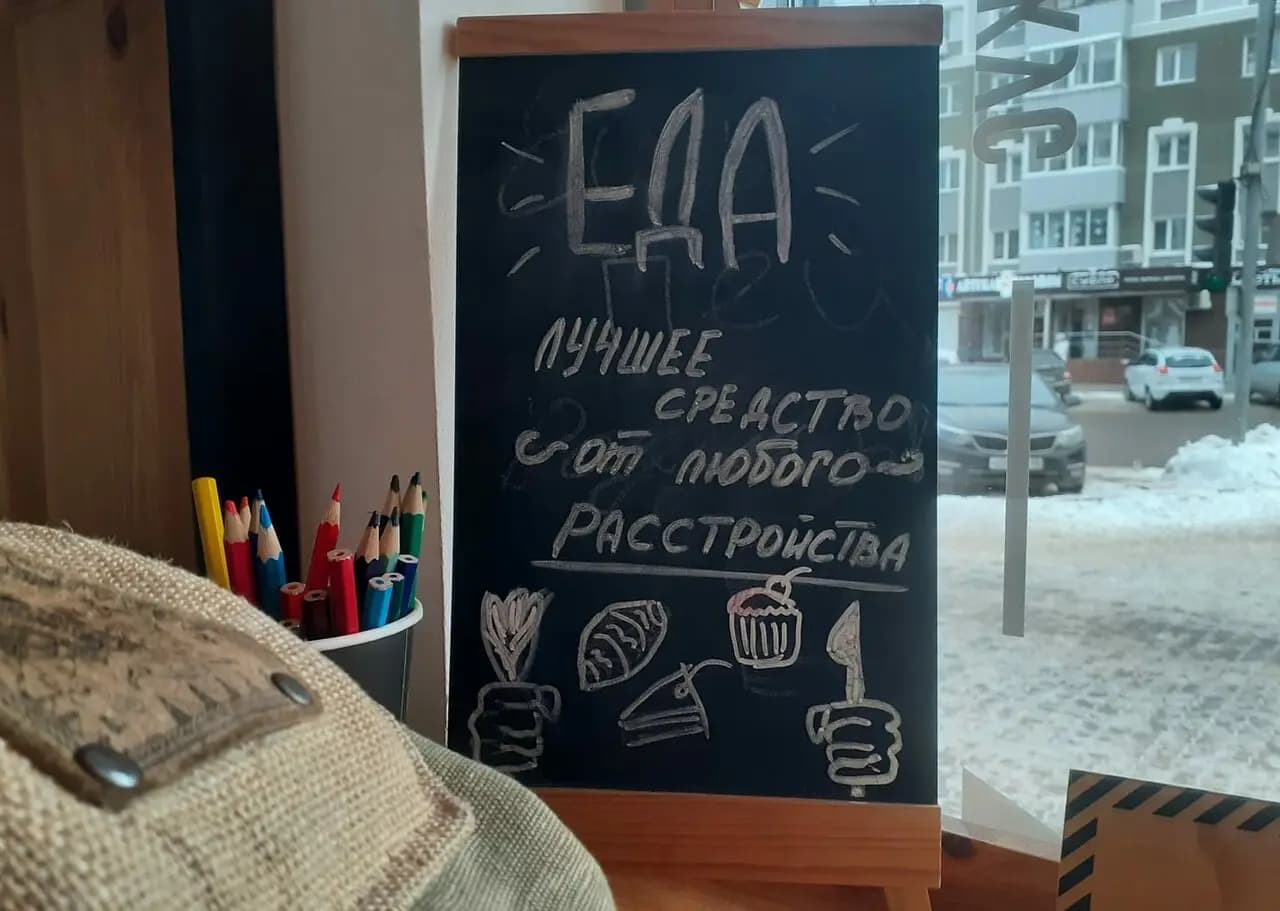 ЕДА
ЛУЧШЕЕ
СРЕДСТВО
от любого
РАССТРОЙСТВА